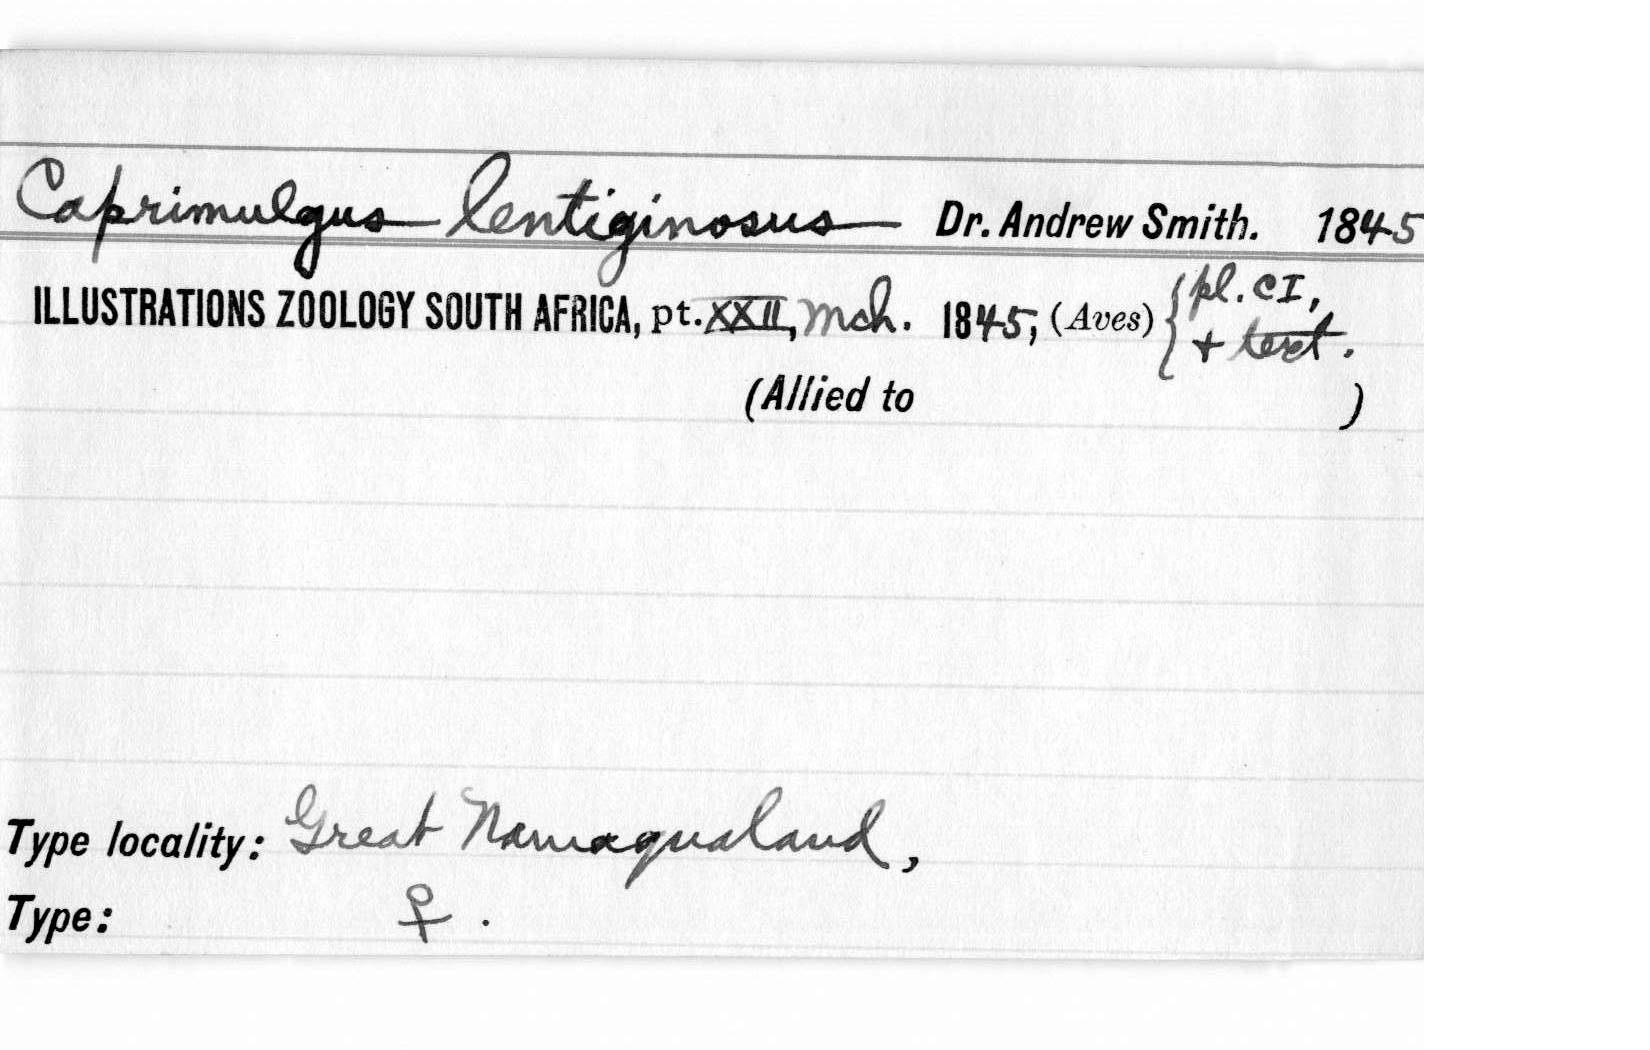 Caprimulgus lentiginosus Dr. Andrew Smith. 1845
ILLUSTRATIONS ZOOLOGY SOUTH AFRICA, pt. XXII, Mch. 1845, (Aves) { pl. CI,
+ text.
(Allied to )
Type locality: Great Namaqualand,
Type: ♀.